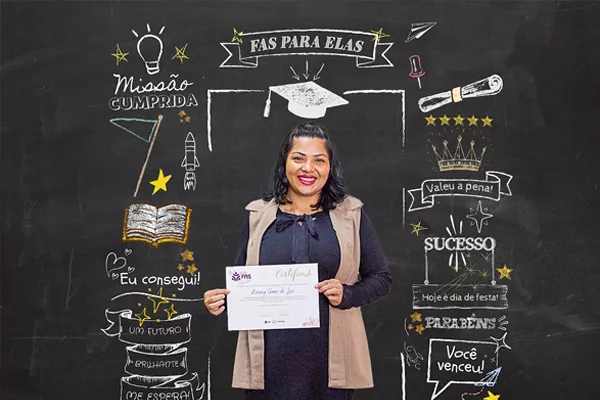 FAS PARA ELAS
Missão
CUMPRIDA
Eu consegui!
UM FUTURO
BRILHANTE
ME ESPERA!
Valeu a pena!
SUCESSO
Hoje é dia de festa!
PARABÉNS
Você
venceu!
FAS
Certificado